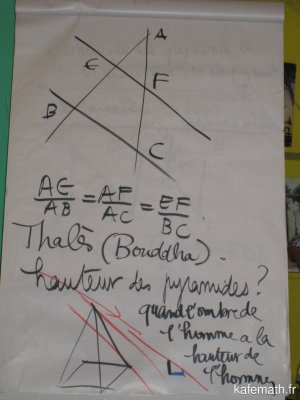 A
E
F
B
C
AE/AB = AF/AC = EF/BC.
Thalès (Bouddha).
hauteur des pyramides?
quand l'ombre de
l'homme a la
hauteur de
l'homme
kafemath.fr